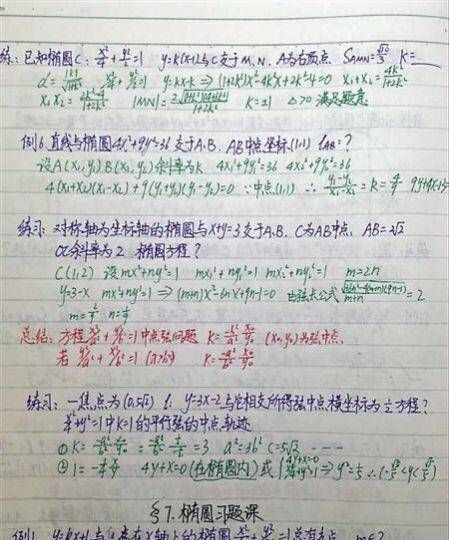 练: 已知椭圆C: x²/4 + y²/2 = 1 y=k(x-1)与C交于M.N. A为右顶点 S△AMN = √10/3 k=
d = |k|/√(1+k²) x²/4 + y²/2 = 1 y=kx-k ⇒ (1+2k²)x²-4k²x+2k²-4=0 x₁+x₂ = 4k²/(1+2k²)
x₁x₂ = (2k²-4)/(1+2k²) |MN| = k=±1 △>0 满足题意
例6. 直线与椭圆4x²+9y²=36 交于A.B. AB中点坐标(1,1) lAB=?
设A(x₁,y₁) B(x₂,y₂) 斜率为k 4x₁²+9y₁²=36 4x₂²+9y₂²=36
4(x₁+x₂)(x₁-x₂)+9(y₁+y₂)(y₁-y₂)=0 ∵中点(1,1) ∴ (y₁-y₂)/(x₁-x₂) = k = -4/9 9y+4x-13
练习: 对称轴为坐标轴的椭圆与x+y=3交于A.B. C为AB中点, AB=2√2
OC斜率为2 椭圆方程?
C(1,2) 设mx²+ny²=1 mx₁²+ny₁²=1 mx₂²+ny₂²=1 m=2n
y=3-x mx²+ny²=1 ⇒ (m+n)x²-6nx+9n-1=0 由弦长公式 = 2
m=2/ n=
总结: 方程x²/a² + y²/b² = 1 中点弦问题 k = -b²/a² x₀/y₀ (x₀,y₀)为弦中点,
若 y²/a² + x²/b² = 1 (a>b) k = -a²/b² x₀/y₀
练习: 一焦点为(0,5√2) l: y=3x-2与它相交所得弦中点横坐标为½ 方程?
x²/4+y²=1中k=1的平行弦的中点轨迹
① k = = = 3 a²=3b² c=5√2 ----
② 1 = -¼ x/y 4y+x=0 (在椭圆内) 或 { 4y+x=0 x²/4+y²=1 ⇒ y²=1/5 ∴(-√5/5<y<√5/5)
§7. 椭圆习题课